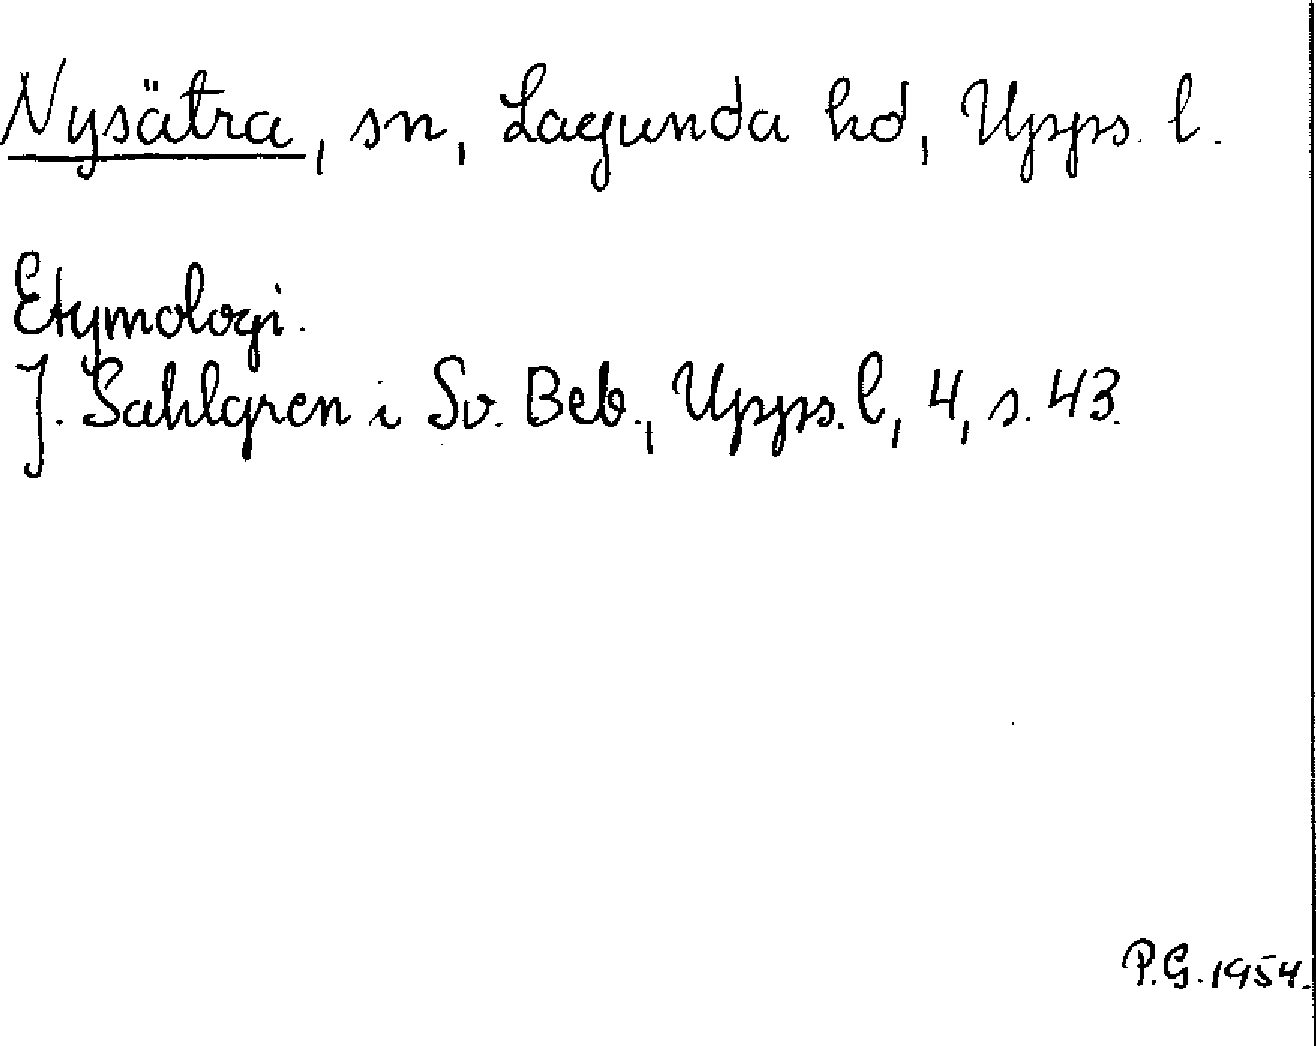 Nysätra, sn, Lagunda hd, Upps. l.
Etymologi.
J. Sahlgren i Sv. Beb., Upps. l, 4, s. 43.
P.G. 1954.